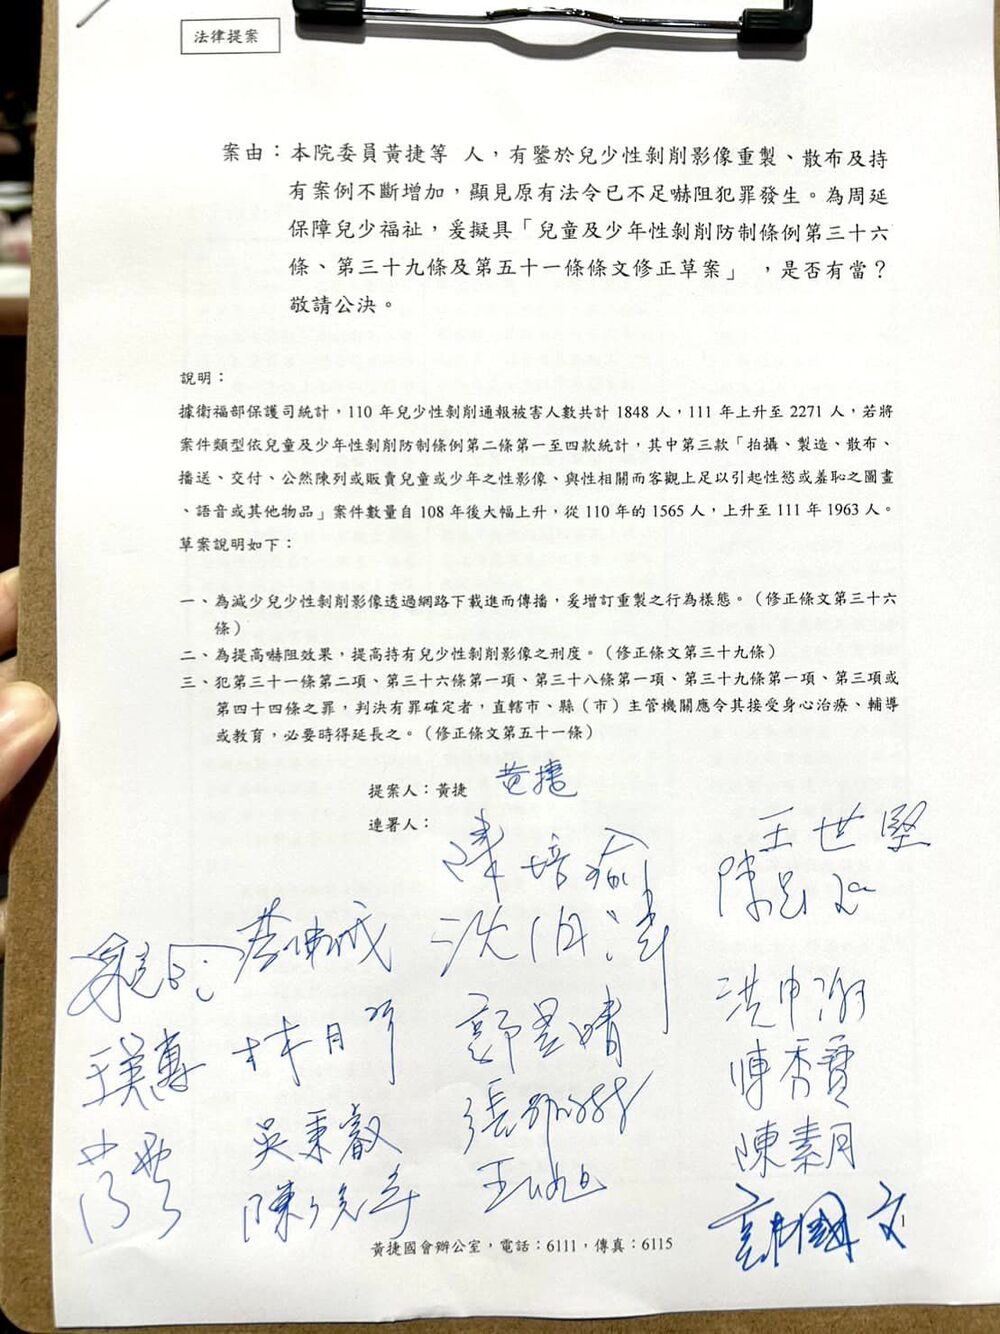 法律提案
案由：本院委員黃捷等 人，有鑒於兒少性剝削影像重製、散布及持
有案例不斷增加，顯見原有法令已不足嚇阻犯罪發生。為周延
保障兒少福祉，爰擬具「兒童及少年性剝削防制條例第三十六
條、第三十九條及第五十一條條文修正草案」 ，是否有當？
敬請公決。
說明：
據衛福部保護司統計，110 年兒少性剝削通報被害人數共計 1848 人，111 年上升至 2271 人，若將
案件類型依兒童及少年性剝削防制條例第二條第一至四款統計，其中第三款「拍攝、製造、散布、
播送、交付、公然陳列或販賣兒童或少年之性影像、與性相關而客觀上足以引起性慾或羞恥之圖畫
、語音或其他物品」案件數量自 108 年後大幅上升，從 110 年的 1565 人，上升至 111 年 1963 人。
草案說明如下：
一、為減少兒少性剝削影像透過網路下載進而傳播，爰增訂重製之行為樣態。（修正條文第三十六
條）
二、為提高嚇阻效果，提高持有兒少性剝削影像之刑度。（修正條文第三十九條）
三、犯第三十一條第二項、第三十六條第一項、第三十八條第一項、第三十九條第一項、第三項或
第四十四條之罪，判決有罪確定者，直轄市、縣（市）主管機關應令其接受身心治療、輔導
或教育，必要時得延長之。（修正條文第五十一條）
提案人：黃捷 黃捷
連署人：
陳培瑜 王世堅
沈伯洋
林月琴 郭昱晴 洪申翰
王美惠 陳秀寳
吳秉叡 陳素月
1
黃捷國會辦公室，電話：6111，傳真：6115